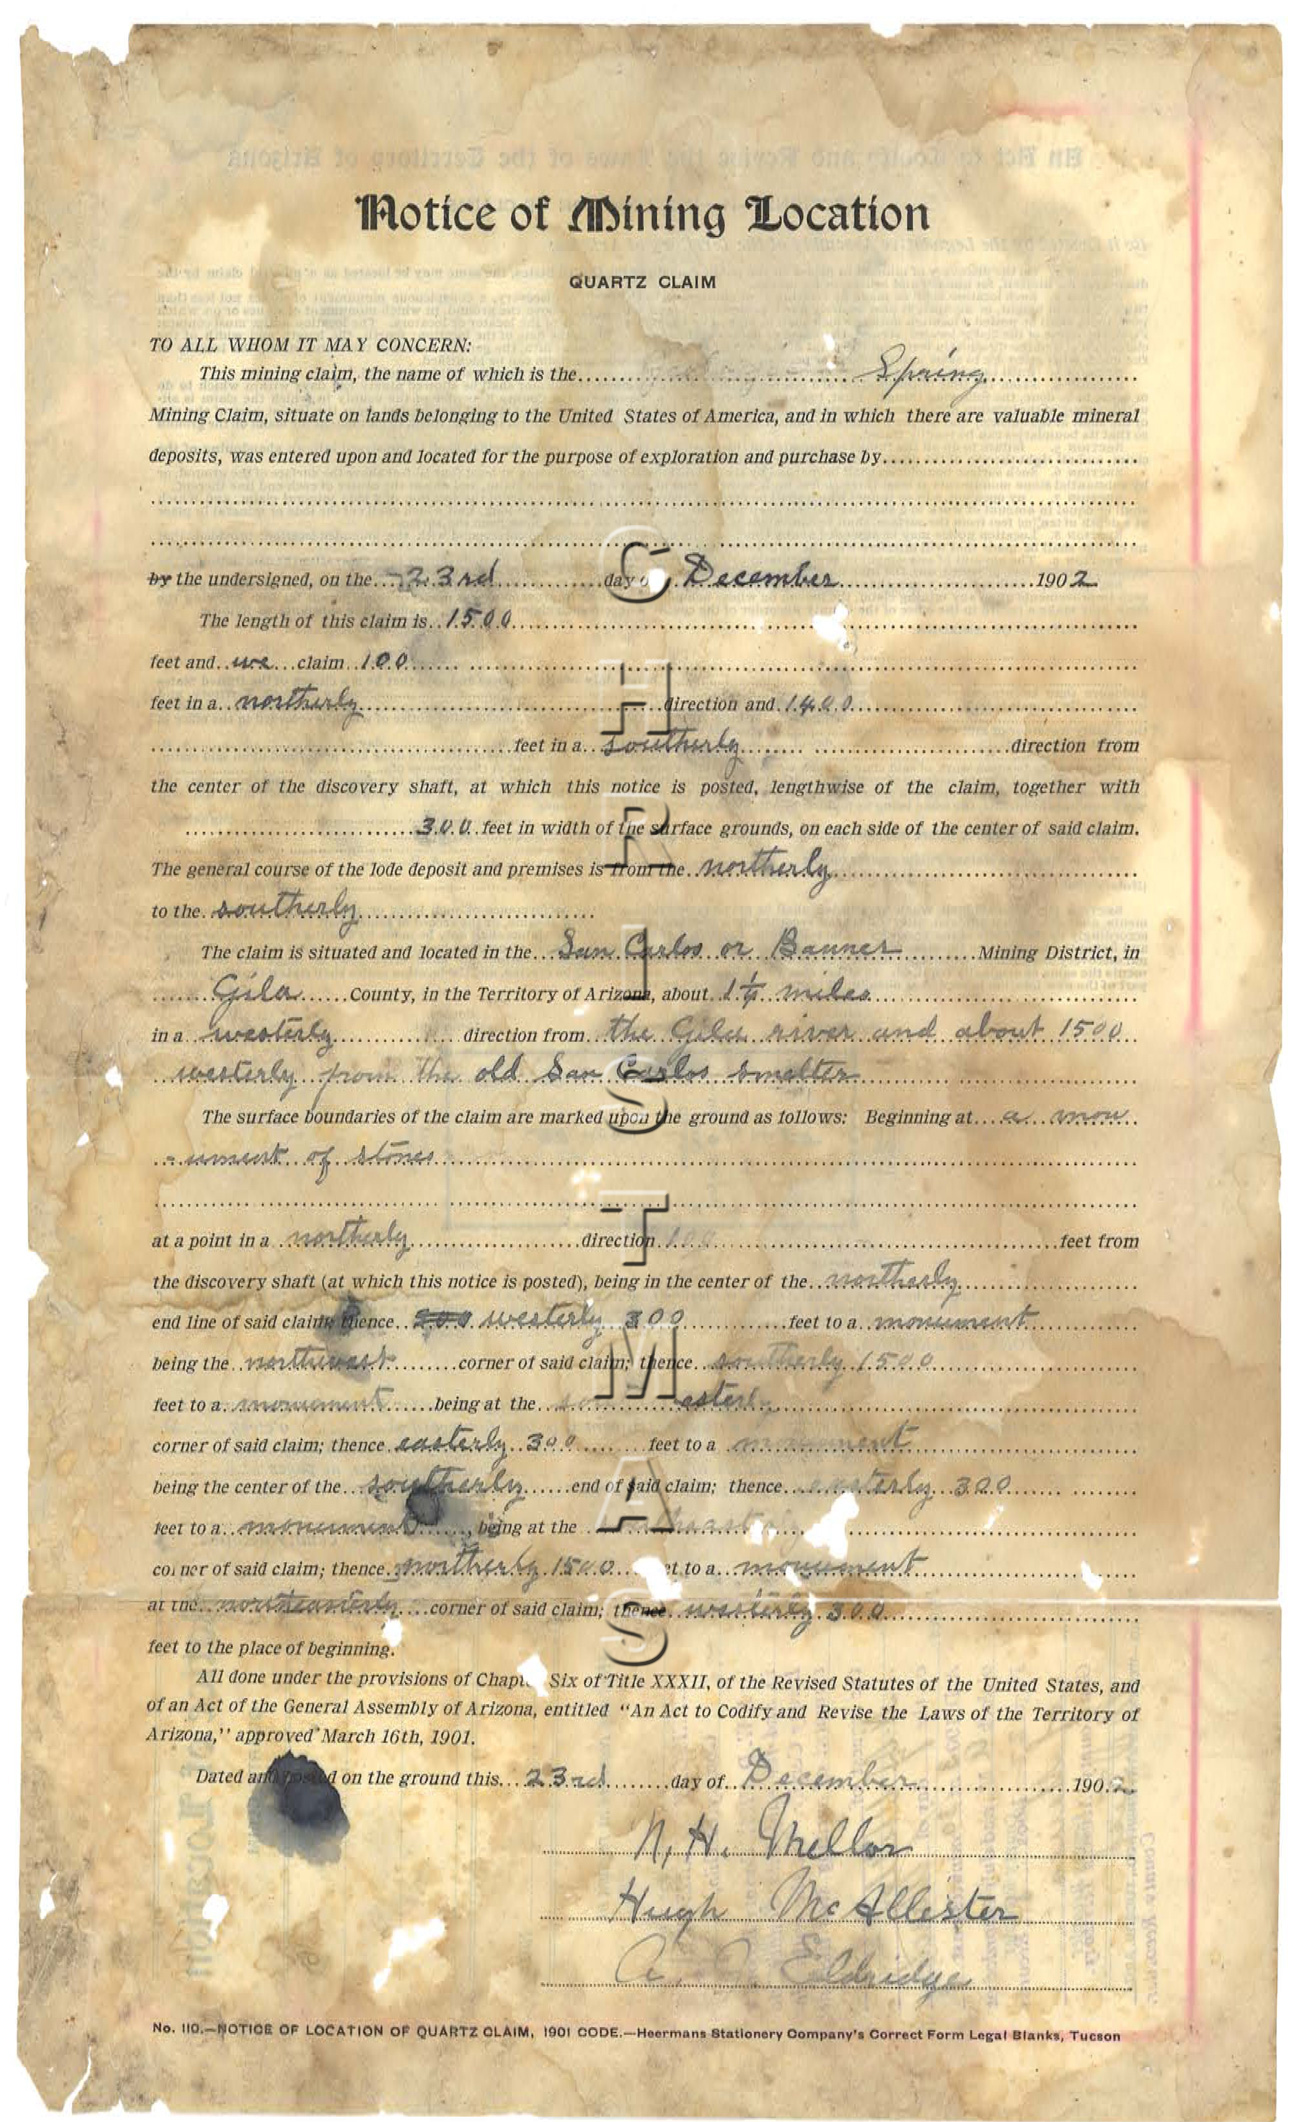 Notice of Mining Location
QUARTZ CLAIM
TO ALL WHOM IT MAY CONCERN:
This mining claim, the name of which is the Spring
Mining Claim, situate on lands belonging to the United States of America, and in which there are valuable mineral
deposits, was entered upon and located for the purpose of exploration and purchase by
by the undersigned, on the 23rd day o December 1902
The length of this claim is 1500
feet and we claim 100
feet in a northerly direction and 1400
feet in a southerly direction from
the center of the discovery shaft, at which this notice is posted, lengthwise of the claim, together with
300 feet in width of the surface grounds, on each side of the center of said claim.
The general course of the lode deposit and premises is from the northerly
to the southerly
The claim is situated and located in the San Carlos or Banner Mining District, in
Gila County, in the Territory of Arizona, about 1¼ miles
in a westerly direction from the Gila river and about 1500
westerly from the old San Carlos smelter
The surface boundaries of the claim are marked upon the ground as follows: Beginning at a mon
-ument of stones
at a point in a northerly direction 100 feet from
the discovery shaft (at which this notice is posted), being in the center of the northerly
end line of said claim; thence westerly 300 feet to a monument
being the northwest corner of said claim; thence southerly 1500
feet to a monument being at the
corner of said claim; thence easterly 300 feet to a monument
being the center of the southerly end of said claim; thence easterly 300
feet to a monument, being at the
corner of said claim; thence northerly 1500 et to a monument
at the northeasterly corner of said claim; thence westerly 300
feet to the place of beginning.
All done under the provisions of Chapt Six of Title XXXII, of the Revised Statutes of the United States, and
of an Act of the General Assembly of Arizona, entitled "An Act to Codify and Revise the Laws of the Territory of
Arizona," approved March 16th, 1901.
Dated and posted on the ground this 23rd day of December 1902
N. H. Mellor
Hugh McAllister
Eldridge
No. 110.—NOTICE OF LOCATION OF QUARTZ CLAIM, 1901 CODE.—Heermans Stationery Company's Correct Form Legal Blanks, Tucson
CHRISTMAS